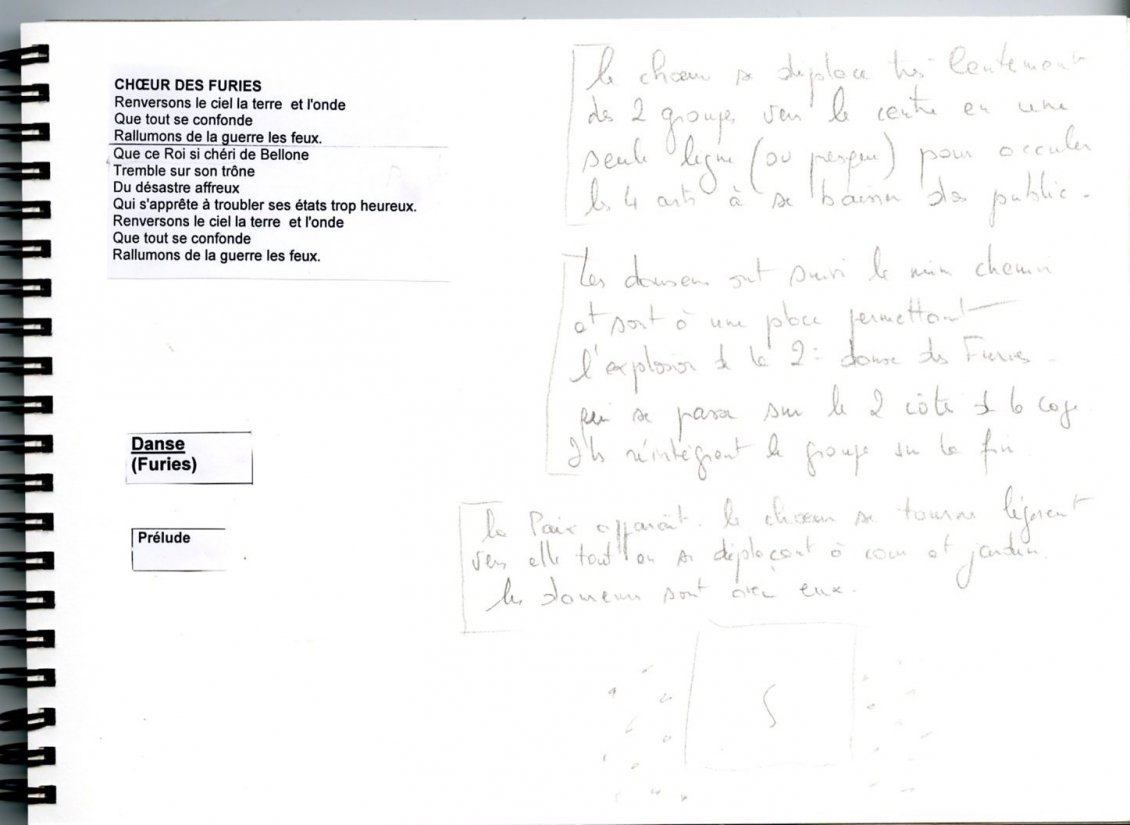 CHŒUR DES FURIES
Renversons le ciel la terre et l'onde
Que tout se confonde
Rallumons de la guerre les feux.
Que ce Roi si chéri de Bellone
Tremble sur son trône
Du désastre affreux
Qui s'apprête à troubler ses états trop heureux.
Renversons le ciel la terre et l'onde
Que tout se confonde
Rallumons de la guerre les feux.
Danse
(Furies)
Prélude
le chœur se déplace très lentement
des 2 groupes vers le centre en une
seule ligne (ou presque) pour occulter
les 4 arts à se public.
Les danseurs ont suivi le même chemin
et sont à une place permettant
l'explosion de la 2e danse des Furies
qui se passe sur le 2 côté de la cage
Ils réintègrent le groupe sur la fin
la Paix apparaît. le chœur se tourne
vers elle tout en se déplaçant à cour et jardin.
les danseurs sont avec eux.